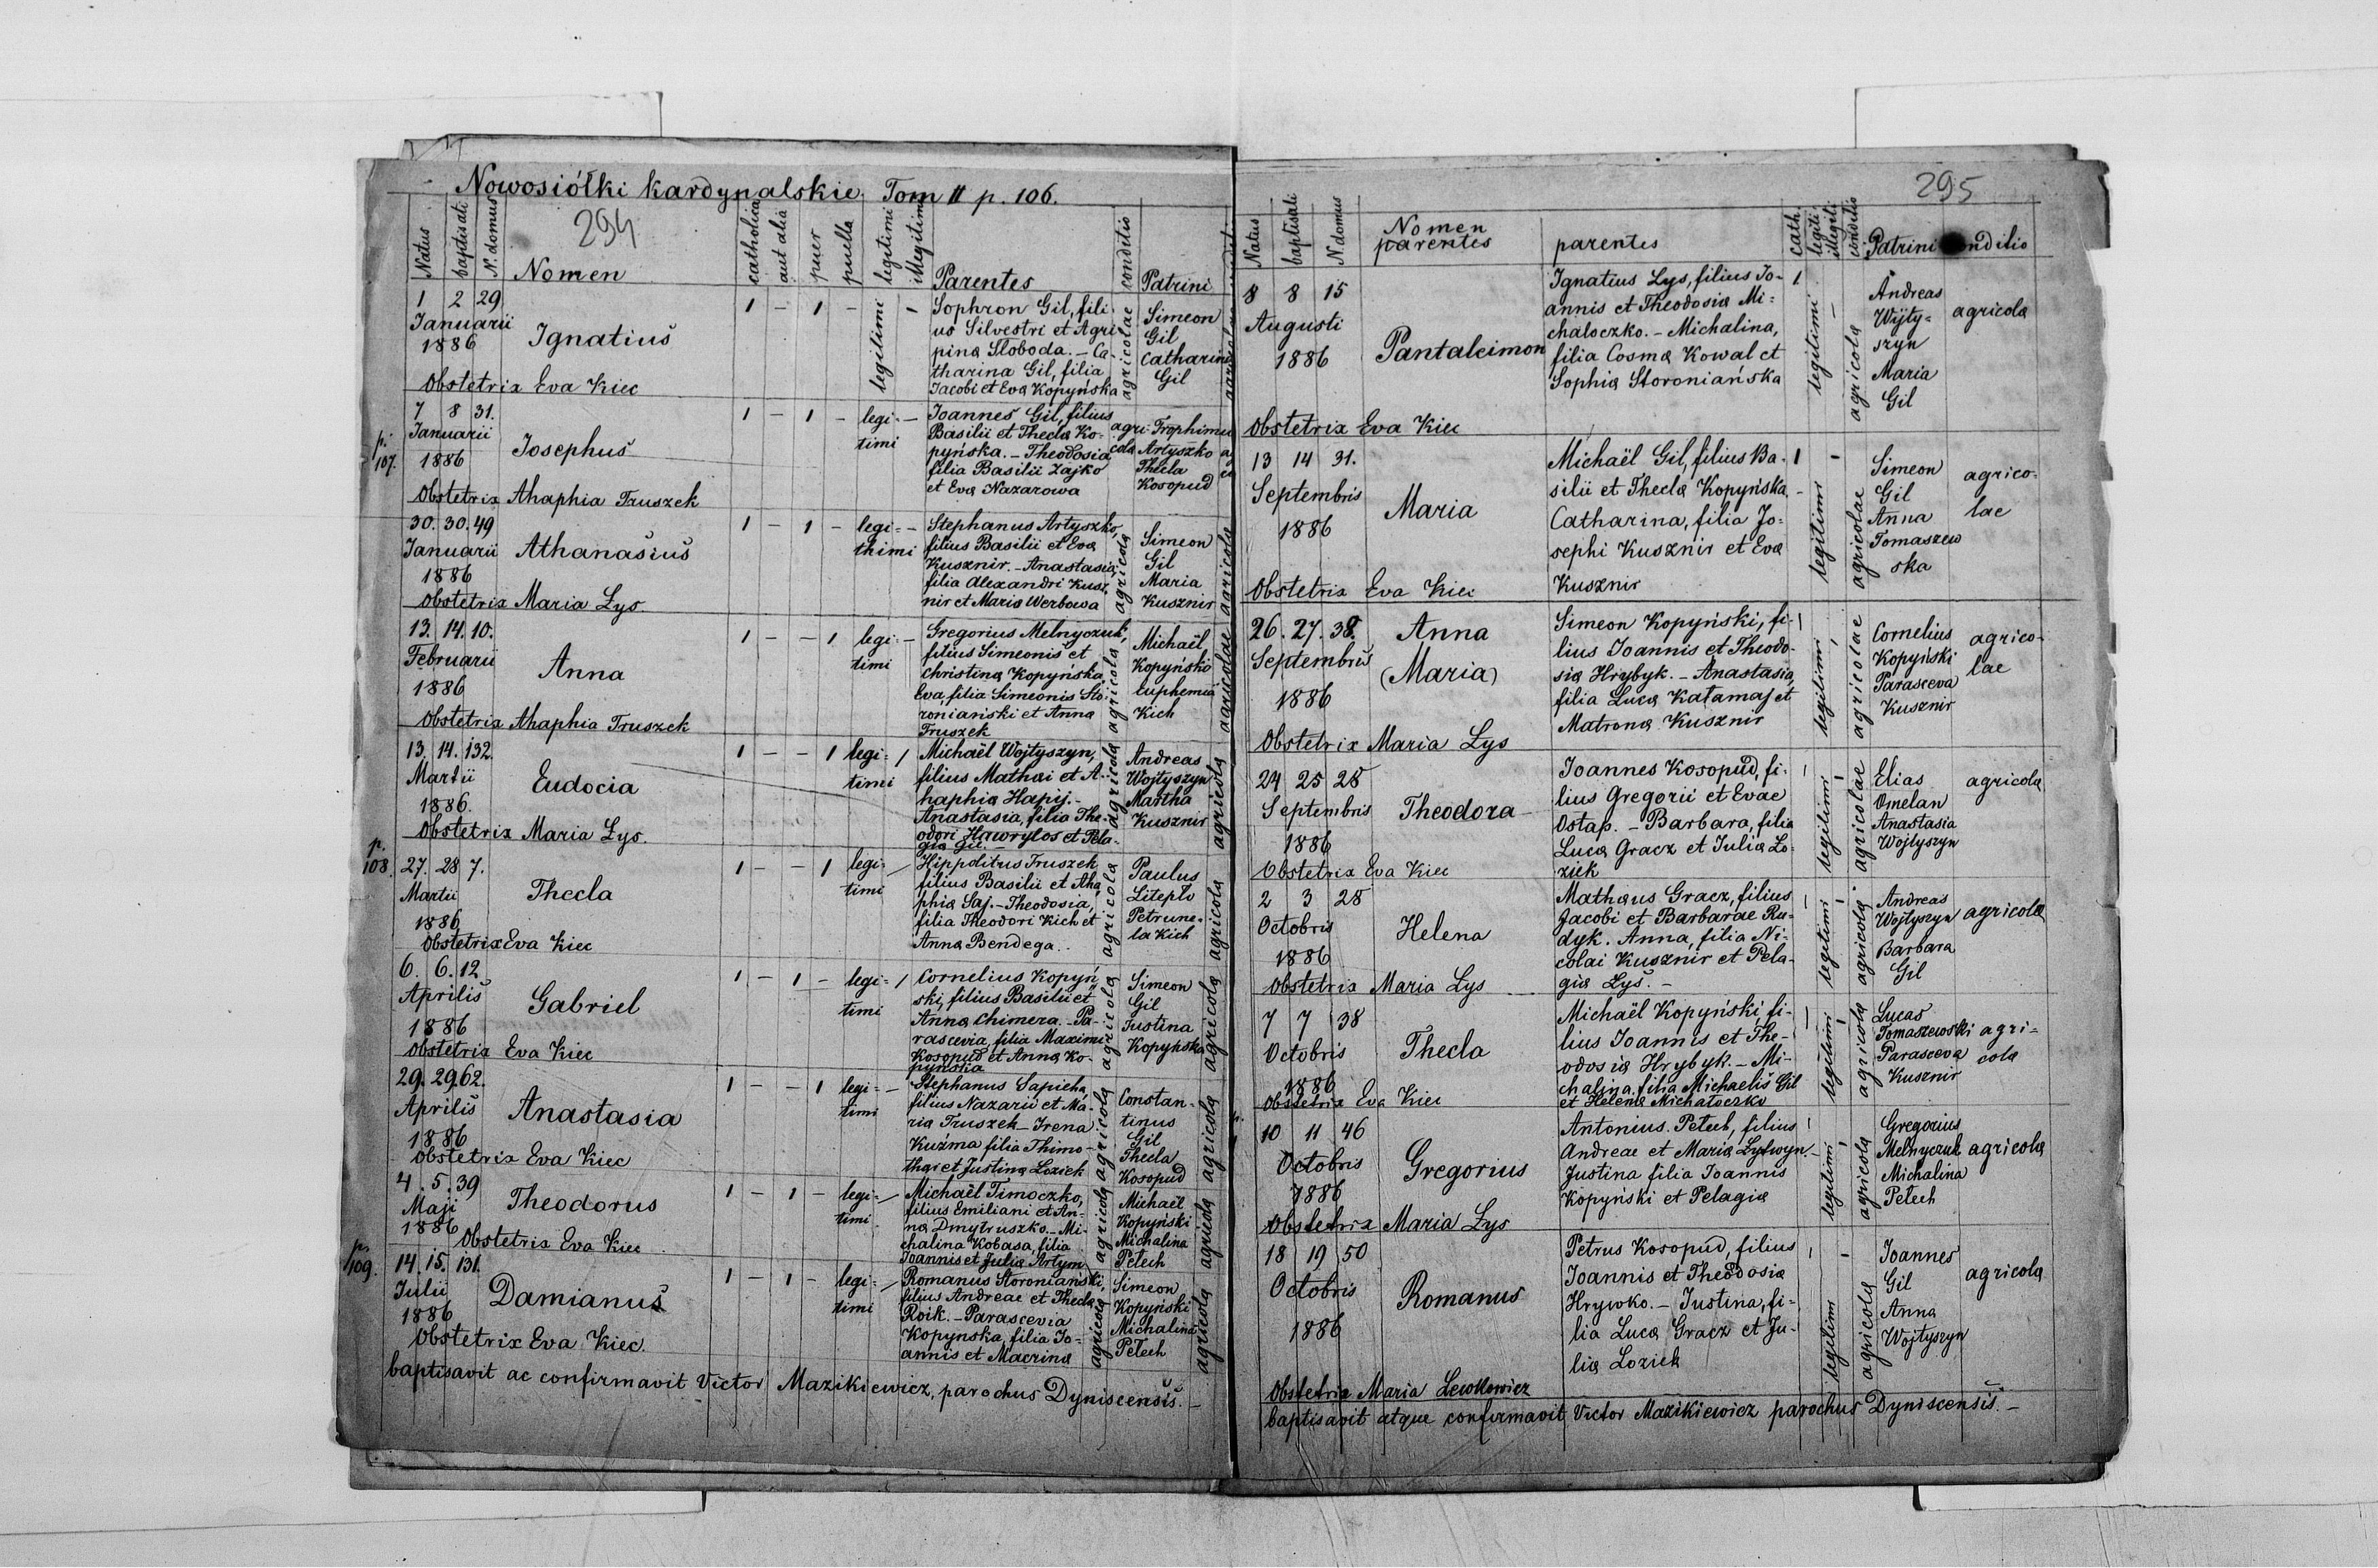 Nowosiółki kardynalskie. Tom II p. 106.
294
Natus
baptisati
N. domus
Nomen
catholica
aut alia
puer
puella
legitimi
illegitimi
Parentes
conditio
Patrini
1 2 29
Januarii
1886
Ignatius
Obstetrix Eva Kiec
1 - 1 -
legitimi
Sophron Gil, fili-
us Silvestri et Agri
pina Sloboda. - Ca-
tharina Gil, filia
Jacobi et Eva Kopyńska
agricolae
Simeon
Gil
Catharina
Gil
p.
107.
7 8 31.
Januarii
1886
Josephus
Obstetrix Ahaphia Truszek
1 - 1 -
legi=
timi
Joannes Gil, filius
Basilii et Thecla Ko-
pyńska. - Theodosia
filia Basilii Zajko
et Eva Nazarowa
agri-
cola
Trophimus
Artyszko
Thecla
Kosopud
30. 30. 49
Januarii
1886
Athanasius
Obstetrix Maria Lys
1 - 1 -
legi=
thimi
Stephanus Artyszko,
filius Basilii et Eva
Kusznir. - Anastasia,
filia Alexandri Kusz,
nir et Maria Werbowa
agricola
Simeon
Gil
Maria
Kusznir
agricola
13. 14. 10.
Februarii
1886
Anna
Obstetrix Ahaphia Truszek
1 - - 1
legi=
timi
Gregorius Melnyczuk,
filius Simeonis et
Christina Kopyńska,
Eva, filia Simeonis Sto,
roniański et Anna
Truszek
agricola
Michaël
Kopyński
Euphemia
Kich
agricolae
13. 14. 132.
Martii
1886.
Eudocia
Obstetrix Maria Lys.
1 - - 1
legi=
timi
Michaël Wojtyszyn,
filius Mathai et A-
haphia Hapij. -
Anastasia, filia The-
odori Hawrylos et Pela-
gia Gil. -
agricola
Andreas
Wojtyszyn
Martha
Kusznir
agricola
p.
108.
27. 28 7.
Martii
1886
Thecla
Obstetrix Eva Kiec
1 - - 1
legi=
timi
Hippolitus Truszek
filius Basilii et Aha,
phia Saj. - Theodosia,
filia Theodori Kich et
Anna Bendega..
agricola
Paulus
Liteplo
Petrune-
la Kich
agricola
6. 6. 12
Aprilis
1886
Gabriel
Obstetrix Eva Kiec
1 - 1 -
legi=
timi
Cornelius Kopyń,
ski, filius Basilii et
Anna Chimera. - Pa-
rascevia, filia Maximi
Kosopud et Anna Ko-
pyńska
agricola
Simeon
Gil
Justina
Kopyńska
agricola
29. 29. 62.
Aprilis
1886
Anastasia
Obstetrix Eva Kiec
1 - - 1
legi=
timi
Stephanus Sapieha,
filius Nazarii et Ma-
ria Truszek - Irena
Kuźma filia Thimo-
thai et Justina Loziek
agricola
Constan-
tinus
Gil
Thecla
Kosopud
agricola
4. 5. 39
Maji
1886
Theodorus
Obstetrix Eva Kiec
1 - 1 -
legi=
timi
Michaël Timoczko,
filius Emiliani et An-
na Dmytruszko - Mi-
chalina Kobasa, filia
Joannis et Julia Artym
agricola
Michaël
Kopyński
Michalina
Petech
agricola
p.
109.
14. 15. 131.
Julii
1886
Damianus
Obstetrix Eva Kiec.
1 - 1 -
legi=
timi
Romanus Storoniański,
filius Andreae et Thecla
Roik. - Parascevia
Kopynska, filia Jo-
annis et Macrina
agricola
Simeon
Kopyński
Michalina
Petech
agricola
baptisavit ac confirmavit Victor Mazikiewicz, parochus Dyniscensis. -
295
Natus
baptisati
N. domus
Nomen
parentes
parentes
cath.
legiti.
illegiti.
conditio
Patrini
conditio
8 8 15
Augusti
1886
Pantaleimon
Obstetrix Eva Kiec
Ignatius Lys, filius Jo-
annis et Theodosia Mi=
chaloczko. - Michalina,
filia Cosma Kowal et
Sophia Storoniańska
1
legitimi
agricola
Andreas
Wijty=
szyn
Maria
Gil
agricola
13 14 31.
Septembris
1886
Maria
Obstetrix Eva Kiec
Michaël Gil, filius Ba-
silii et Thecla Kopyńska.
Catharina, filia Jo-
sephi Kusznir et Eva
Kusznir
1
legitimi
agricolae
Simeon
Gil
Anna
Tomaszew
ska
agrico-
lae
26. 27. 38.
Septembris
1886
Anna
(Maria)
Obstetrix Maria Lys
Simeon Kopyński, fi-
lius Joannis et Theodo-
sia Hrybyk. - Anastasia,
filia Luca Katamaj et
Matrona Kusznir
legitimi
agricolae
Cornelius
Kopyński
Parasceva
Kusznir
agrico-
lae
24 25 28
Septembris
1886
Theodora
Obstetrix Eva Kiec
Joannes Kosopud, fi-
lius Gregorii et Evae
Ostap. - Barbara, filia
Luca Gracz et Julia Lo-
ziek
legitimi
agricolae
Elias
Omelan
Anastasia
Wojtyszyn
agricola
2 3 28
Octobris
1886
Helena
Obstetrix Maria Lys
Mathaus Gracz, filius
Jacobi et Barbarae Ru-
dyk. Anna, filia Ni-
colai Kusznir et Pela-
gia Lys. -
legitimi
agricola
Andreas
Wojtyszyn
Barbara
Gil
agricola
7 7 38
Octobris
1886
Thecla
Obstetrix Eva Kiec
Michaël Kopyński, fi-
lius Joannis et The-
odosia Hrybyk. - Mi-
chalina, filia Michaelis Gil
et Helena Michaloczko
legitimi
agricola
Lucas
Tomaszewski
Parasceva
Kusznir
agri-
cola
10 11 46
Octobris
1886
Gregorius
Obstetrix Maria Lys
Antonius Petech, filius
Andreae et Maria Lytwyn. -
Justina filia Joannis
Kopyński et Pelagia
legitimi
agricola
Gregorius
Melnyczuk
Michalina
Petech
agricola
18 19 50
Octobris
1886
Romanus
Obstetrix Maria Lewkowicz
Petrus Kosopud, filius
Joannis et Theodosia
Hrywko. - Justina, fi-
lia Luca Gracz et Ju-
lia Loziek
legitimi
agricola
Joannes
Gil
Anna
Wojtyszyn
agricola
baptisavit atque confirmavit Victor Mazikiewicz parochus Dyniscensis. -